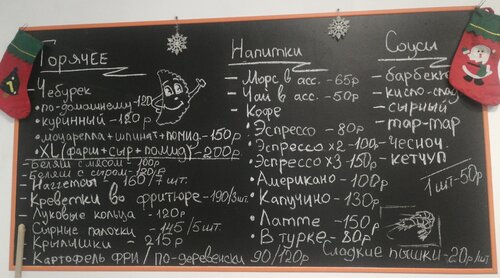 Горячее
- Чебурек
• по-домашнему - 120
• куринный - 120 р
• моцарелла + шпинат + помид. - 150 р
• XL (фарш + сыр + помид.) - 200р
- Беляш с мясом - 100р
- Беляш с сыром - 120р
- Наггетсы - 160/7 шт.
- Креветки во фритюре - 190/3шт.
- Луковые кольца - 120р
- Сырные палочки - 145/5 шт.
- Крылышки - 215р
- Картофель фри / по-деревенски 90/120р
Напитки
- Морс в асс. - 65р
- Чай в асс. - 50р
- Кофе
• Эспрессо - 80р
• Эспрессо x2 - 100р
• Эспрессо x3 150р
• Американо - 100р
• Капучино - 130р
• Латте - 150р
• В турке - 80р
Сладкие пышки - 20р/шт
Соуси
- барбекю
- кисло-слад
- сырный
- тар-тар
- чесноч.
- кетчуп
1 шт - 50р